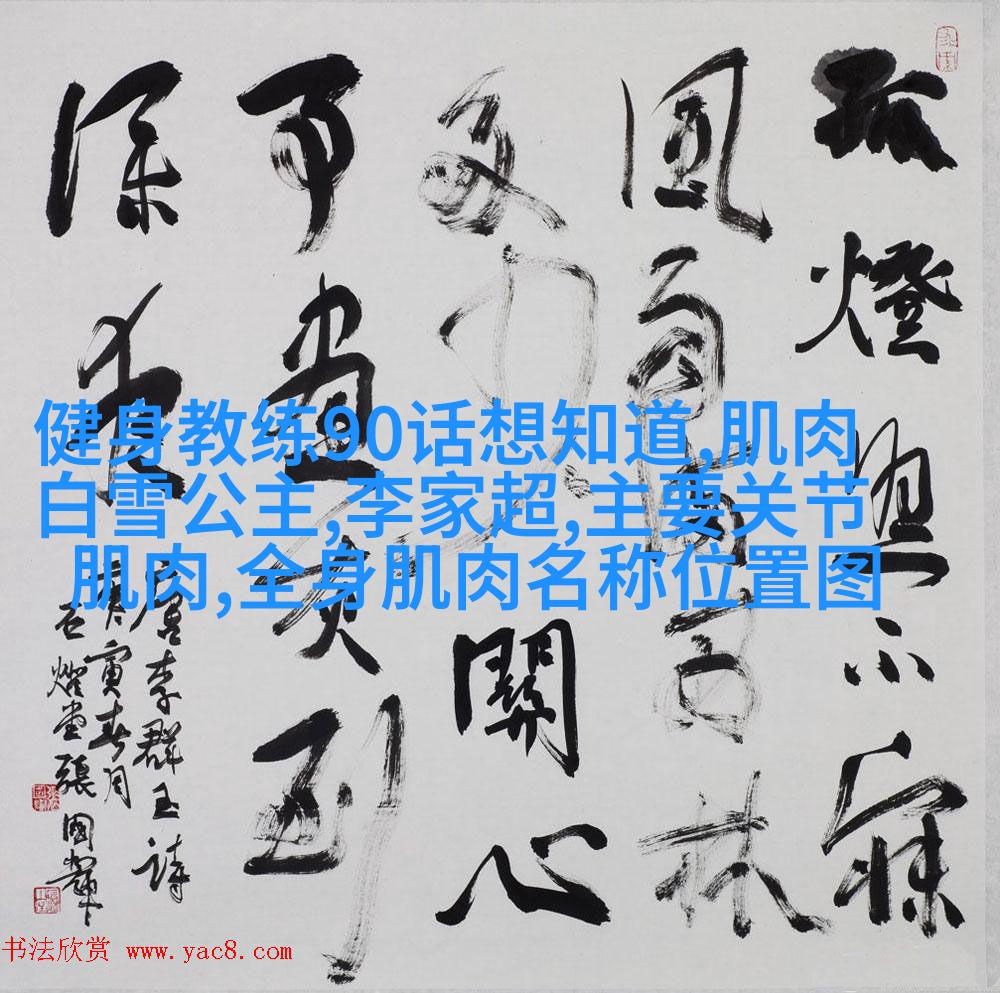 孤燈照不寐
風雨滿西林
多少關心
事書灰到
深夜
唐李群玉詩
庚寅春月
張國輝
健身教练90话想知道,肌肉
白雪公主,李家超,主要关节
肌肉,全身肌肉名称位置图
书法欣赏 www.yac8.com